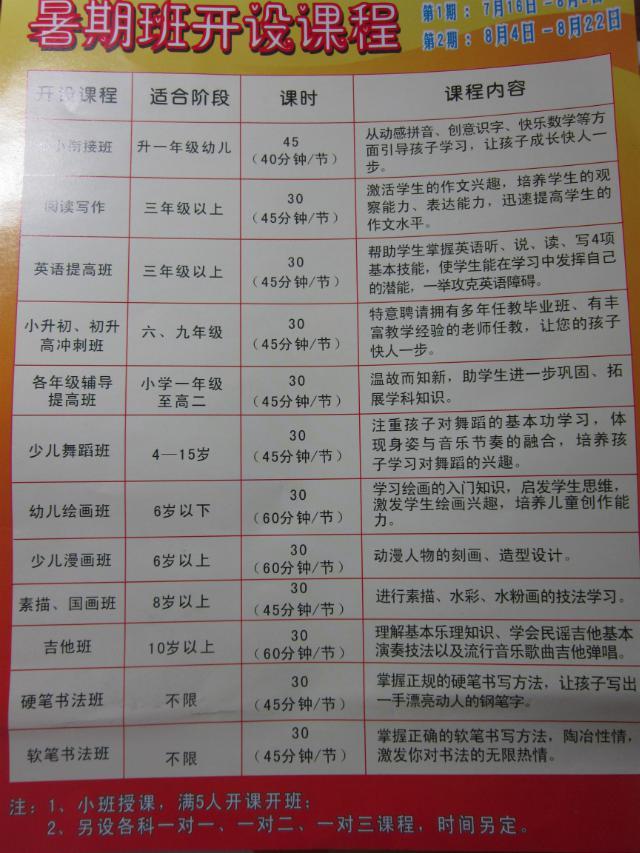 暑期班开设课程
第1期：7月16日—8月
第2期：8月4日—8月22日
开设课程 适合阶段 课时 课程内容
小衔接班 升一年级幼儿 45 (40分钟/节) 从动感拼音、创意识字、快乐数学等方
面引导孩子学习，让孩子成长快人一
步。
阅读写作 三年级以上 30 (45分钟/节) 激活学生的作文兴趣，培养学生的观
察能力、表达能力，迅速提高学生的
作文水平。
英语提高班 三年级以上 30 (45分钟/节) 帮助学生掌握英语听、说、读、写4项
基本技能，使学生能在学习中发挥自己
的潜能，一举攻克英语障碍。
小升初、初升
高冲刺班 六、九年级 30 (45分钟/节) 特意聘请拥有多年任教毕业班、有丰
富教学经验的老师任教，让您的孩子
快人一步。
各年级辅导
提高班 小学一年级
至高二 30 (45分钟/节) 温故而知新，助学生进一步巩固、拓
展学科知识。
少儿舞蹈班 4—15岁 30 (45分钟/节) 注重孩子对舞蹈的基本功学习，体
现身姿与音乐节奏的融合，培养孩
子学习对舞蹈的兴趣。
幼儿绘画班 6岁以下 30 (60分钟/节) 学习绘画的入门知识，启发学生思维，
激发学生绘画兴趣，培养儿童创作能
力。
少儿漫画班 6岁以上 30 (60分钟/节) 动漫人物的刻画、造型设计。
素描、国画班 8岁以上 30 (45分钟/节) 进行素描、水彩、水粉画的技法学习。
吉他班 10岁以上 30 (60分钟/节) 理解基本乐理知识、学会民谣吉他基本
演奏技法以及流行音乐歌曲吉他弹唱。
硬笔书法班 不限 30 (45分钟/节) 掌握正规的硬笔书写方法，让孩子写出
一手漂亮动人的钢笔字。
软笔书法班 不限 30 (45分钟/节) 掌握正确的软笔书写方法，陶冶性情，
激发你对书法的无限热情。
注：1、小班授课，满5人开课开班；
2、另设各科一对一、一对二、一对三课程，时间另定。